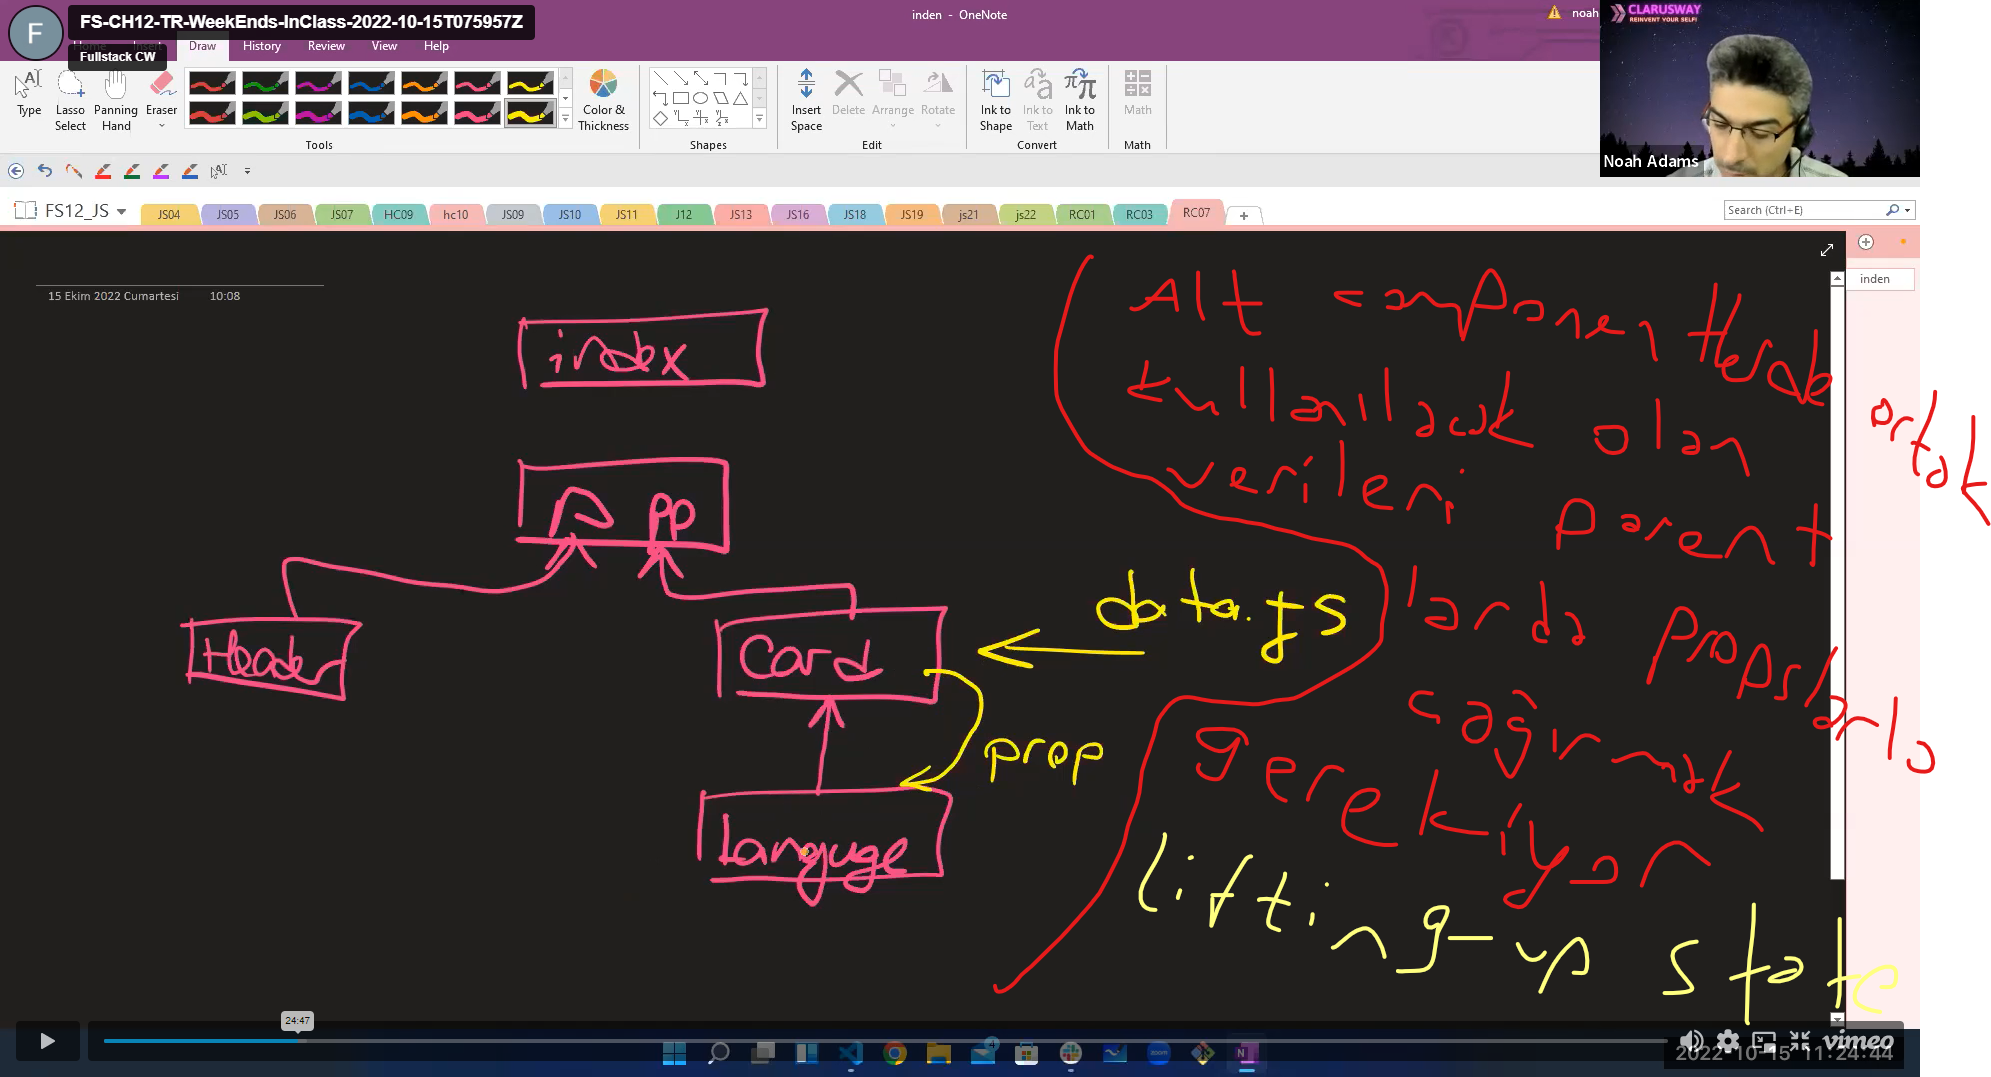 FS-CH12-TR-WeekEnds-InClass-2022-10-15T075957Z
F
Fullstack CW
inden - OneNote
noah
CLARUSWAY
REINVENT YOUR SELF!
Noah Adams
Home Insert Draw History Review View Help
Type
Lasso Select
Panning Hand
Eraser
Color & Thickness
Insert Space
Delete
Arrange
Rotate
Ink to Shape
Ink to Text
Ink to Math
Math
Tools Shapes Edit Convert Math
FS12_JS JS04 JS05 JS06 JS07 HC09 hc10 JS09 JS10 JS11 J12 JS13 JS16 JS18 JS19 js21 js22 RC01 RC03 RC07
Search (Ctrl+E)
inden
15 Ekim 2022 Cumartesi 10:08
index
App
Header
Card
Languge
data.js
prop
Alt componentlerde
ortak
kullanılacak olan
verileri parent
larda propslarla
çağırmak
gerekiyor
lifting-up state
24:47
4
zoom
N
vimeo
2022-10-15 11:24:44